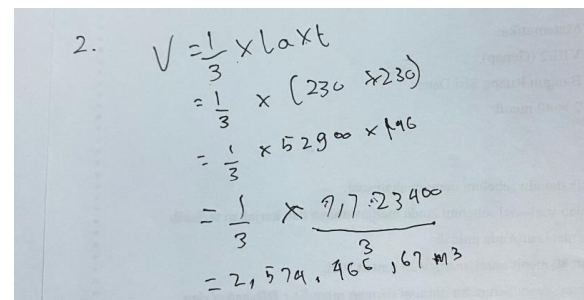 2. V = 1/3 x la x t
= 1/3 x (230 x 230)
= 1/3 x 52900 x 146
= 1/3 x 7,7.23400/3
= 2,574.466,67 m3